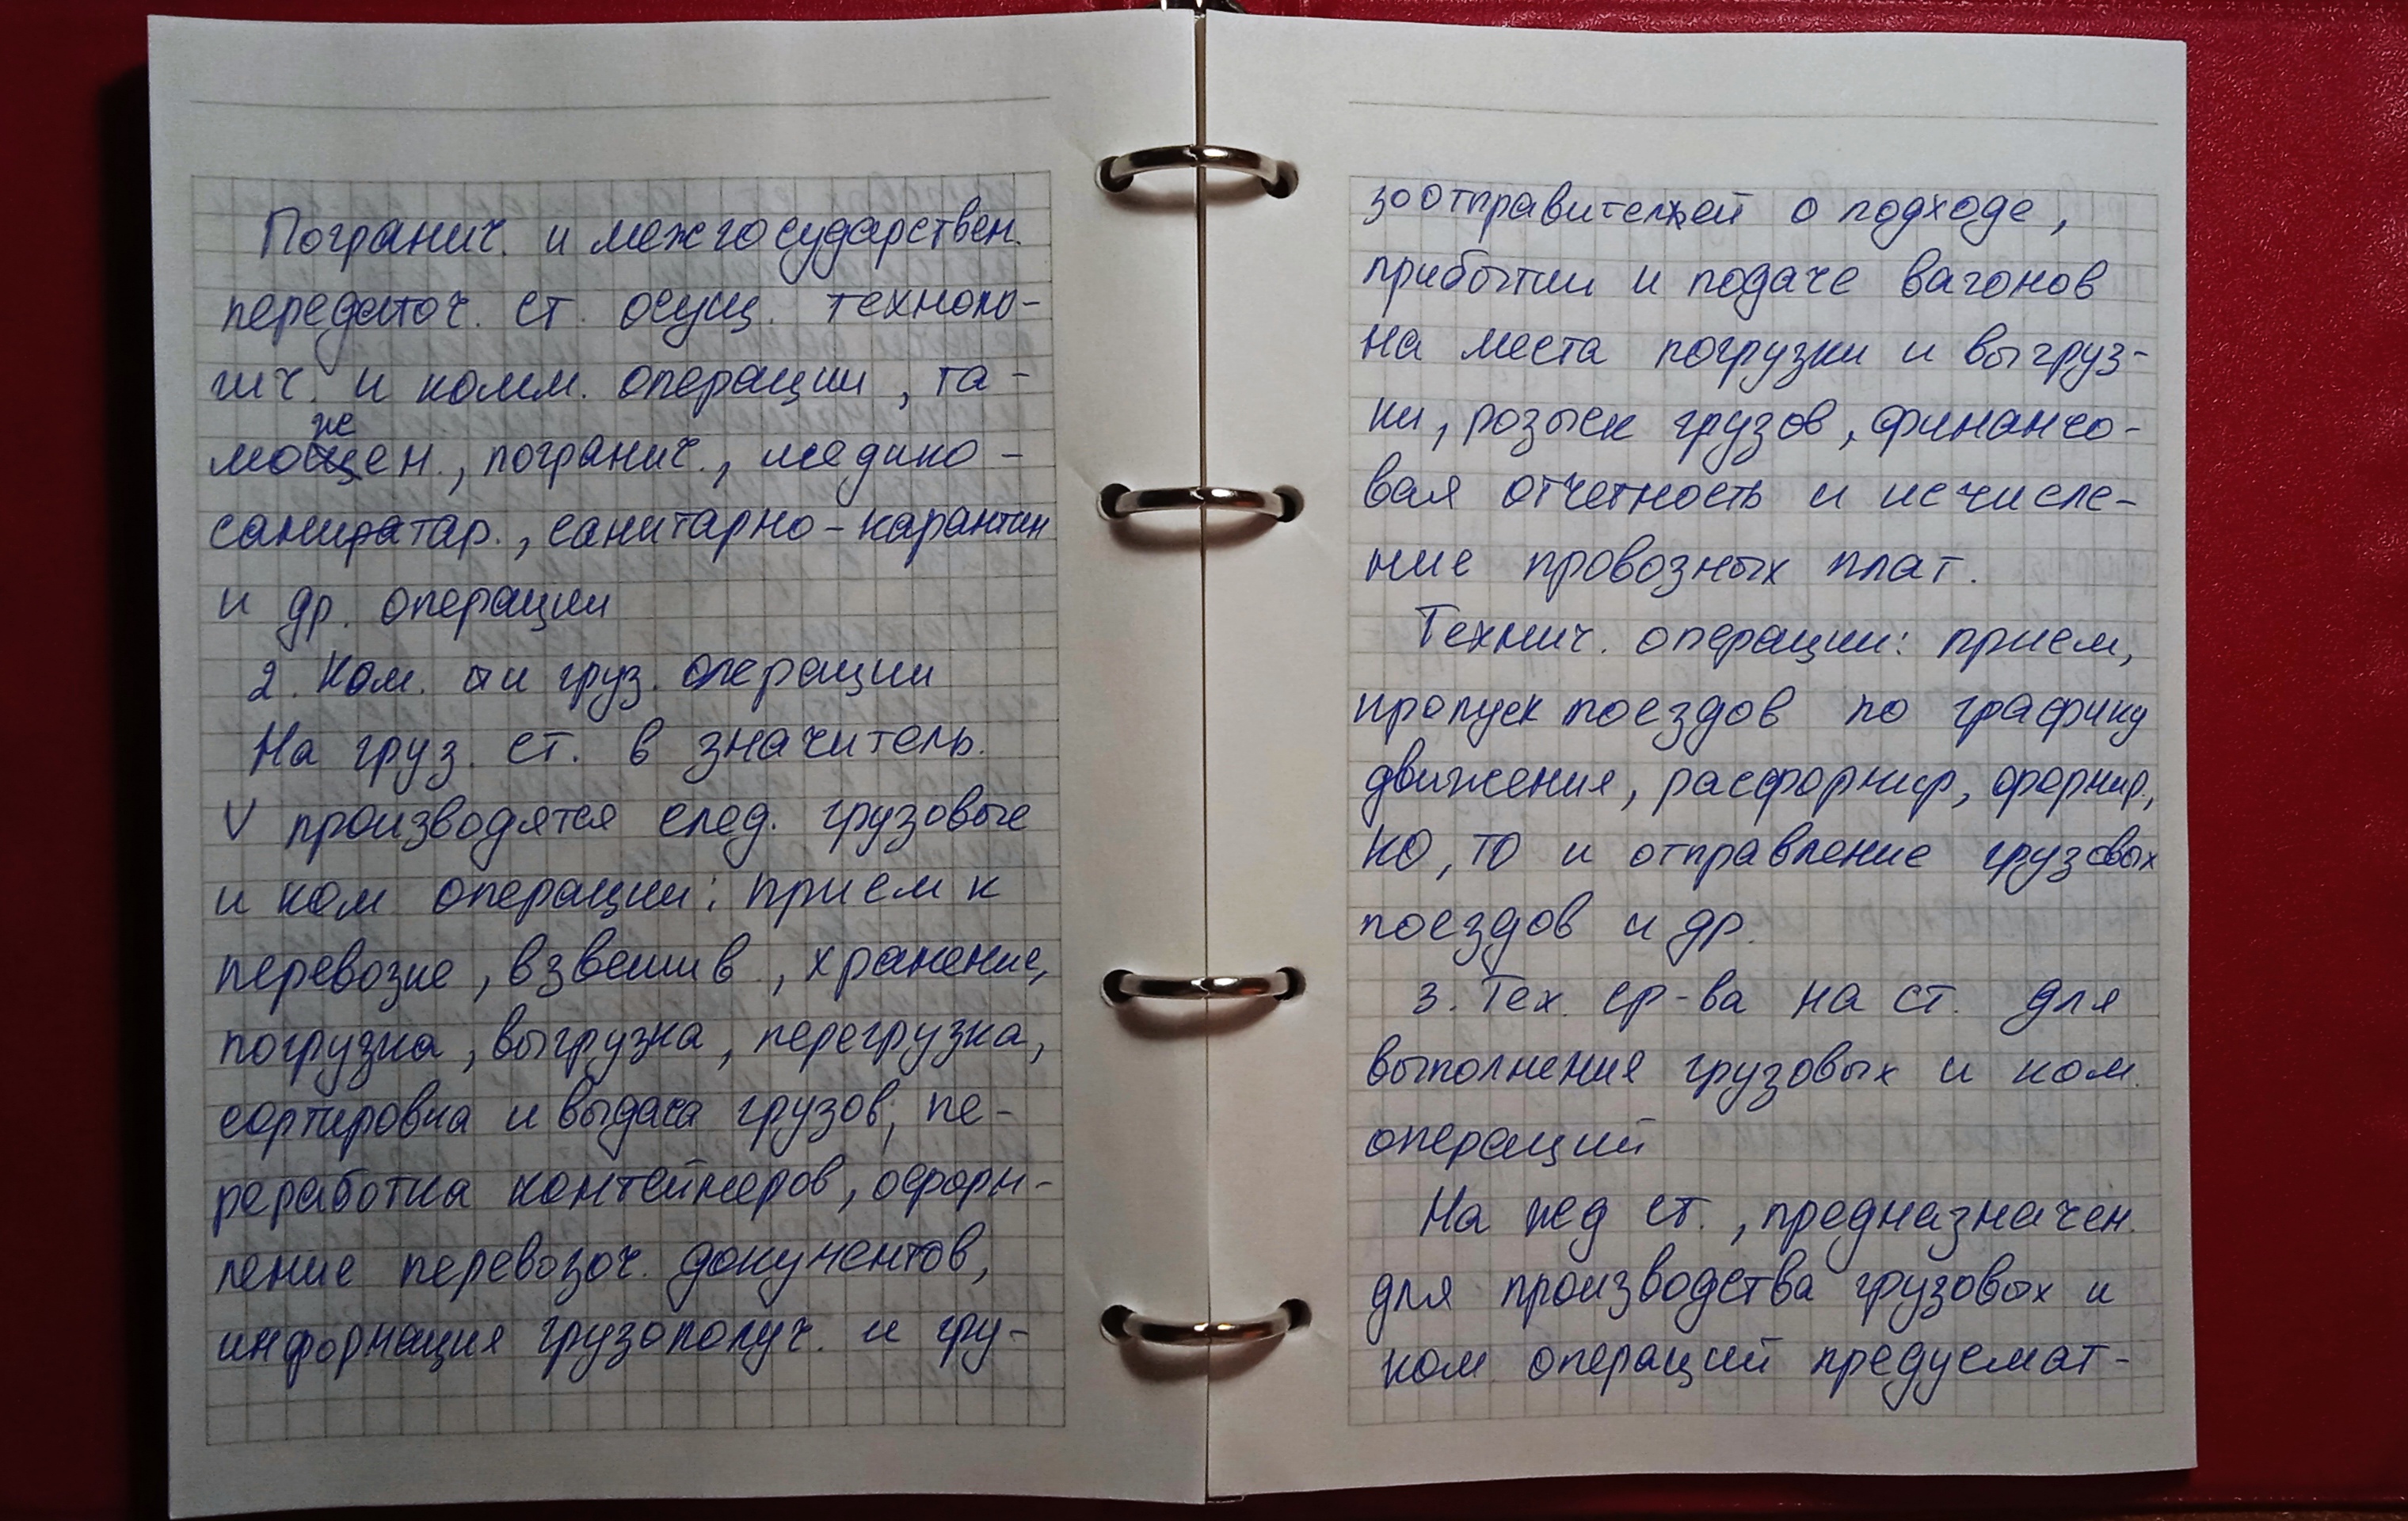 Погранич. и межгосударствен.
передаточ. ст. осущ. техноло-
гич. и комм. операции, та-
можен., погранич., медико-
санитар., санитарно-карантин
и др. операции
2. Ком. и груз. операции
На груз. ст. в значитель.
V производятся след. грузовые
и ком операции: прием к
перевозке, взвешив, хранение,
погрузка, выгрузка, перегрузка,
сортировка и выдача грузов, пе-
реработка контейнеров, оформ-
ление перевозоч. документов,
информация грузополуч. и гру-
зоотправителей о подходе,
прибытии и подаче вагонов
на места погрузки и выгруз-
ки, розыск грузов, финансо-
вая отчетность и исчисле-
ние провозных плат.
Технич. операции: прием,
пропуск поездов по графику
движения, расформир, формир.,
КО, ТО и отправление грузовых
поездов и др.
3. Тех. ср-ва на ст. для
выполнения грузовых и ком.
операций
На жд ст., предназначен.
для производства грузовых и
ком операций предусмат-